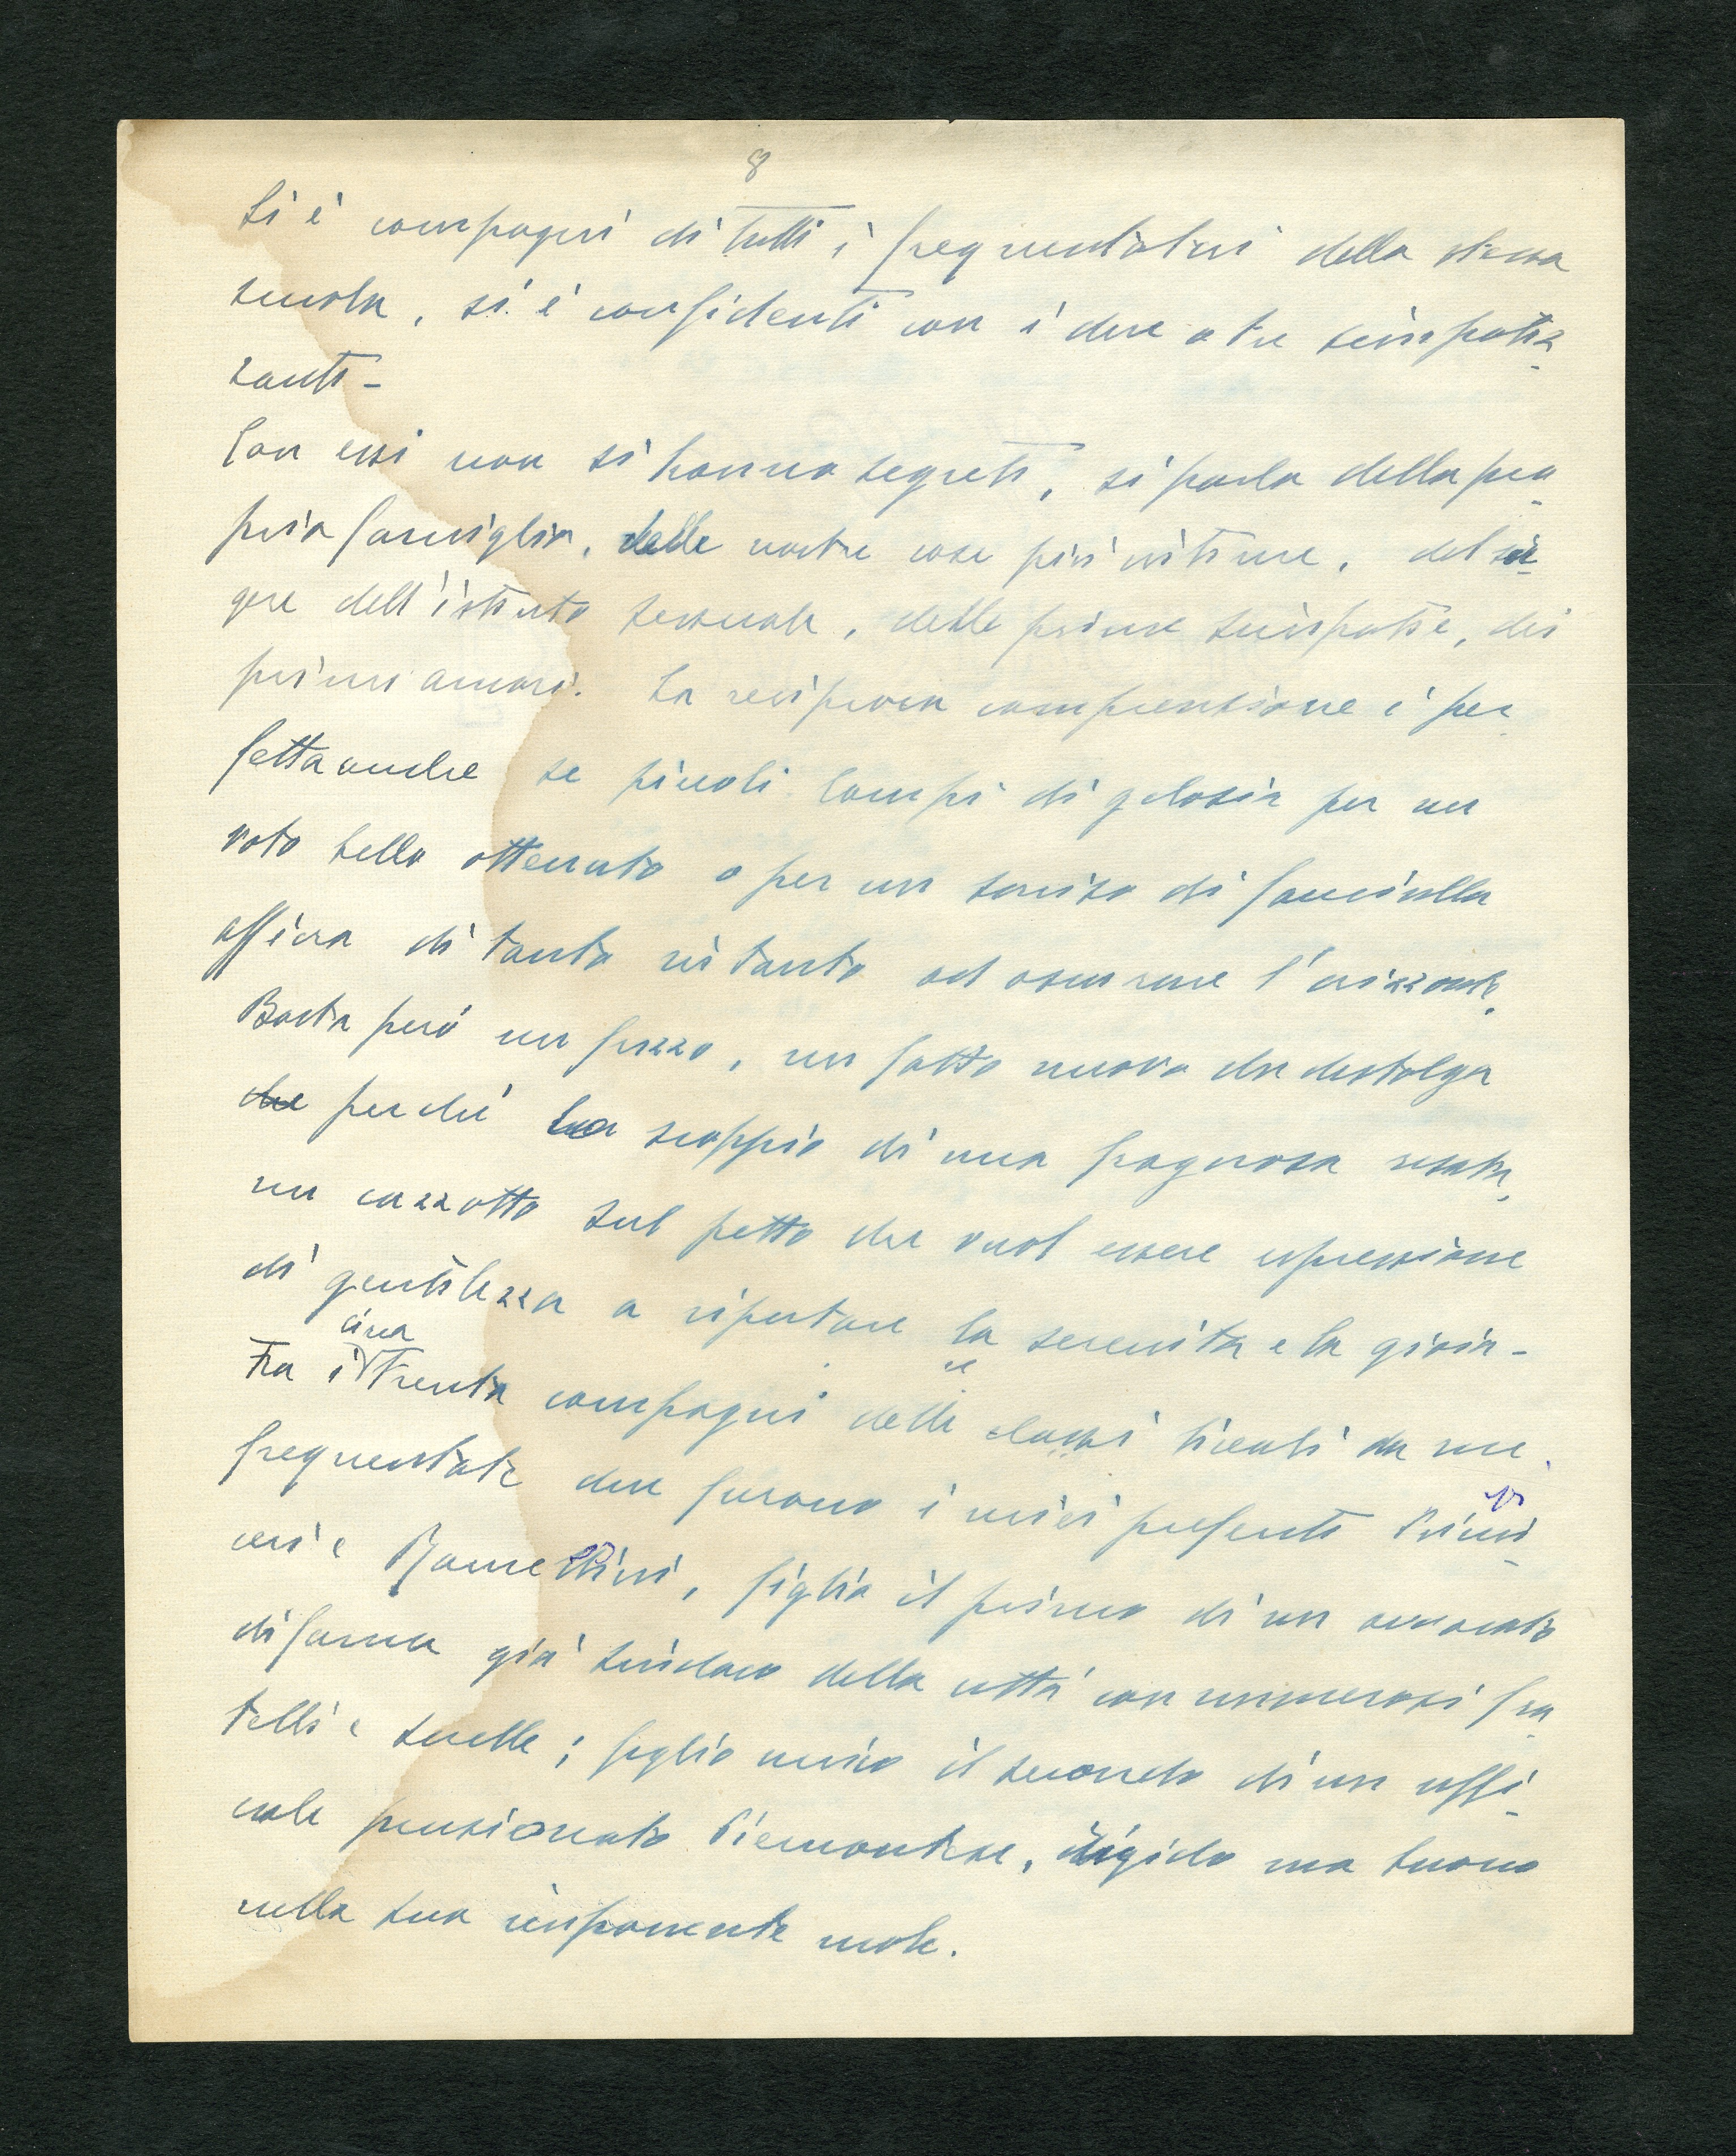 8
Si è compagni di tutti i frequentatori della stessa
scuola, si è confidenti con i due o tre simpatiz-
zanti -
Con essi non si hanno segreti, si parla della pro-
pria famiglia, delle nostre cose più intime, del sor-
gere dell'istinto sessuale, delle prime simpatie, dei
primi amori. La reciproca comprensione è per-
fetta anche se piccoli lampi di gelosia per un
voto bello ottenuto o per un sorriso di fanciulla
affiora di tanto in tanto ad oscurare l'orizzonte.
Basta però un frizzo, un fatto nuovo che distolga
che perchè lo scoppio di una fragorosa risata,
un cazzotto sul petto che vuol essere espressione
di gentilezza a riportare la serenità e la gioia -
circa
Fra i trenta compagni delle classi liceali da me
frequentate due furono i miei preferiti
e, figlio il primo di un avvocato
di fama già sindaco della città con numerosi fra-
telli e sorelle; figlio unico il secondo di un uffi-
ciale pensionato Piemontese, rigido ma buono
nella sua imponente mole.